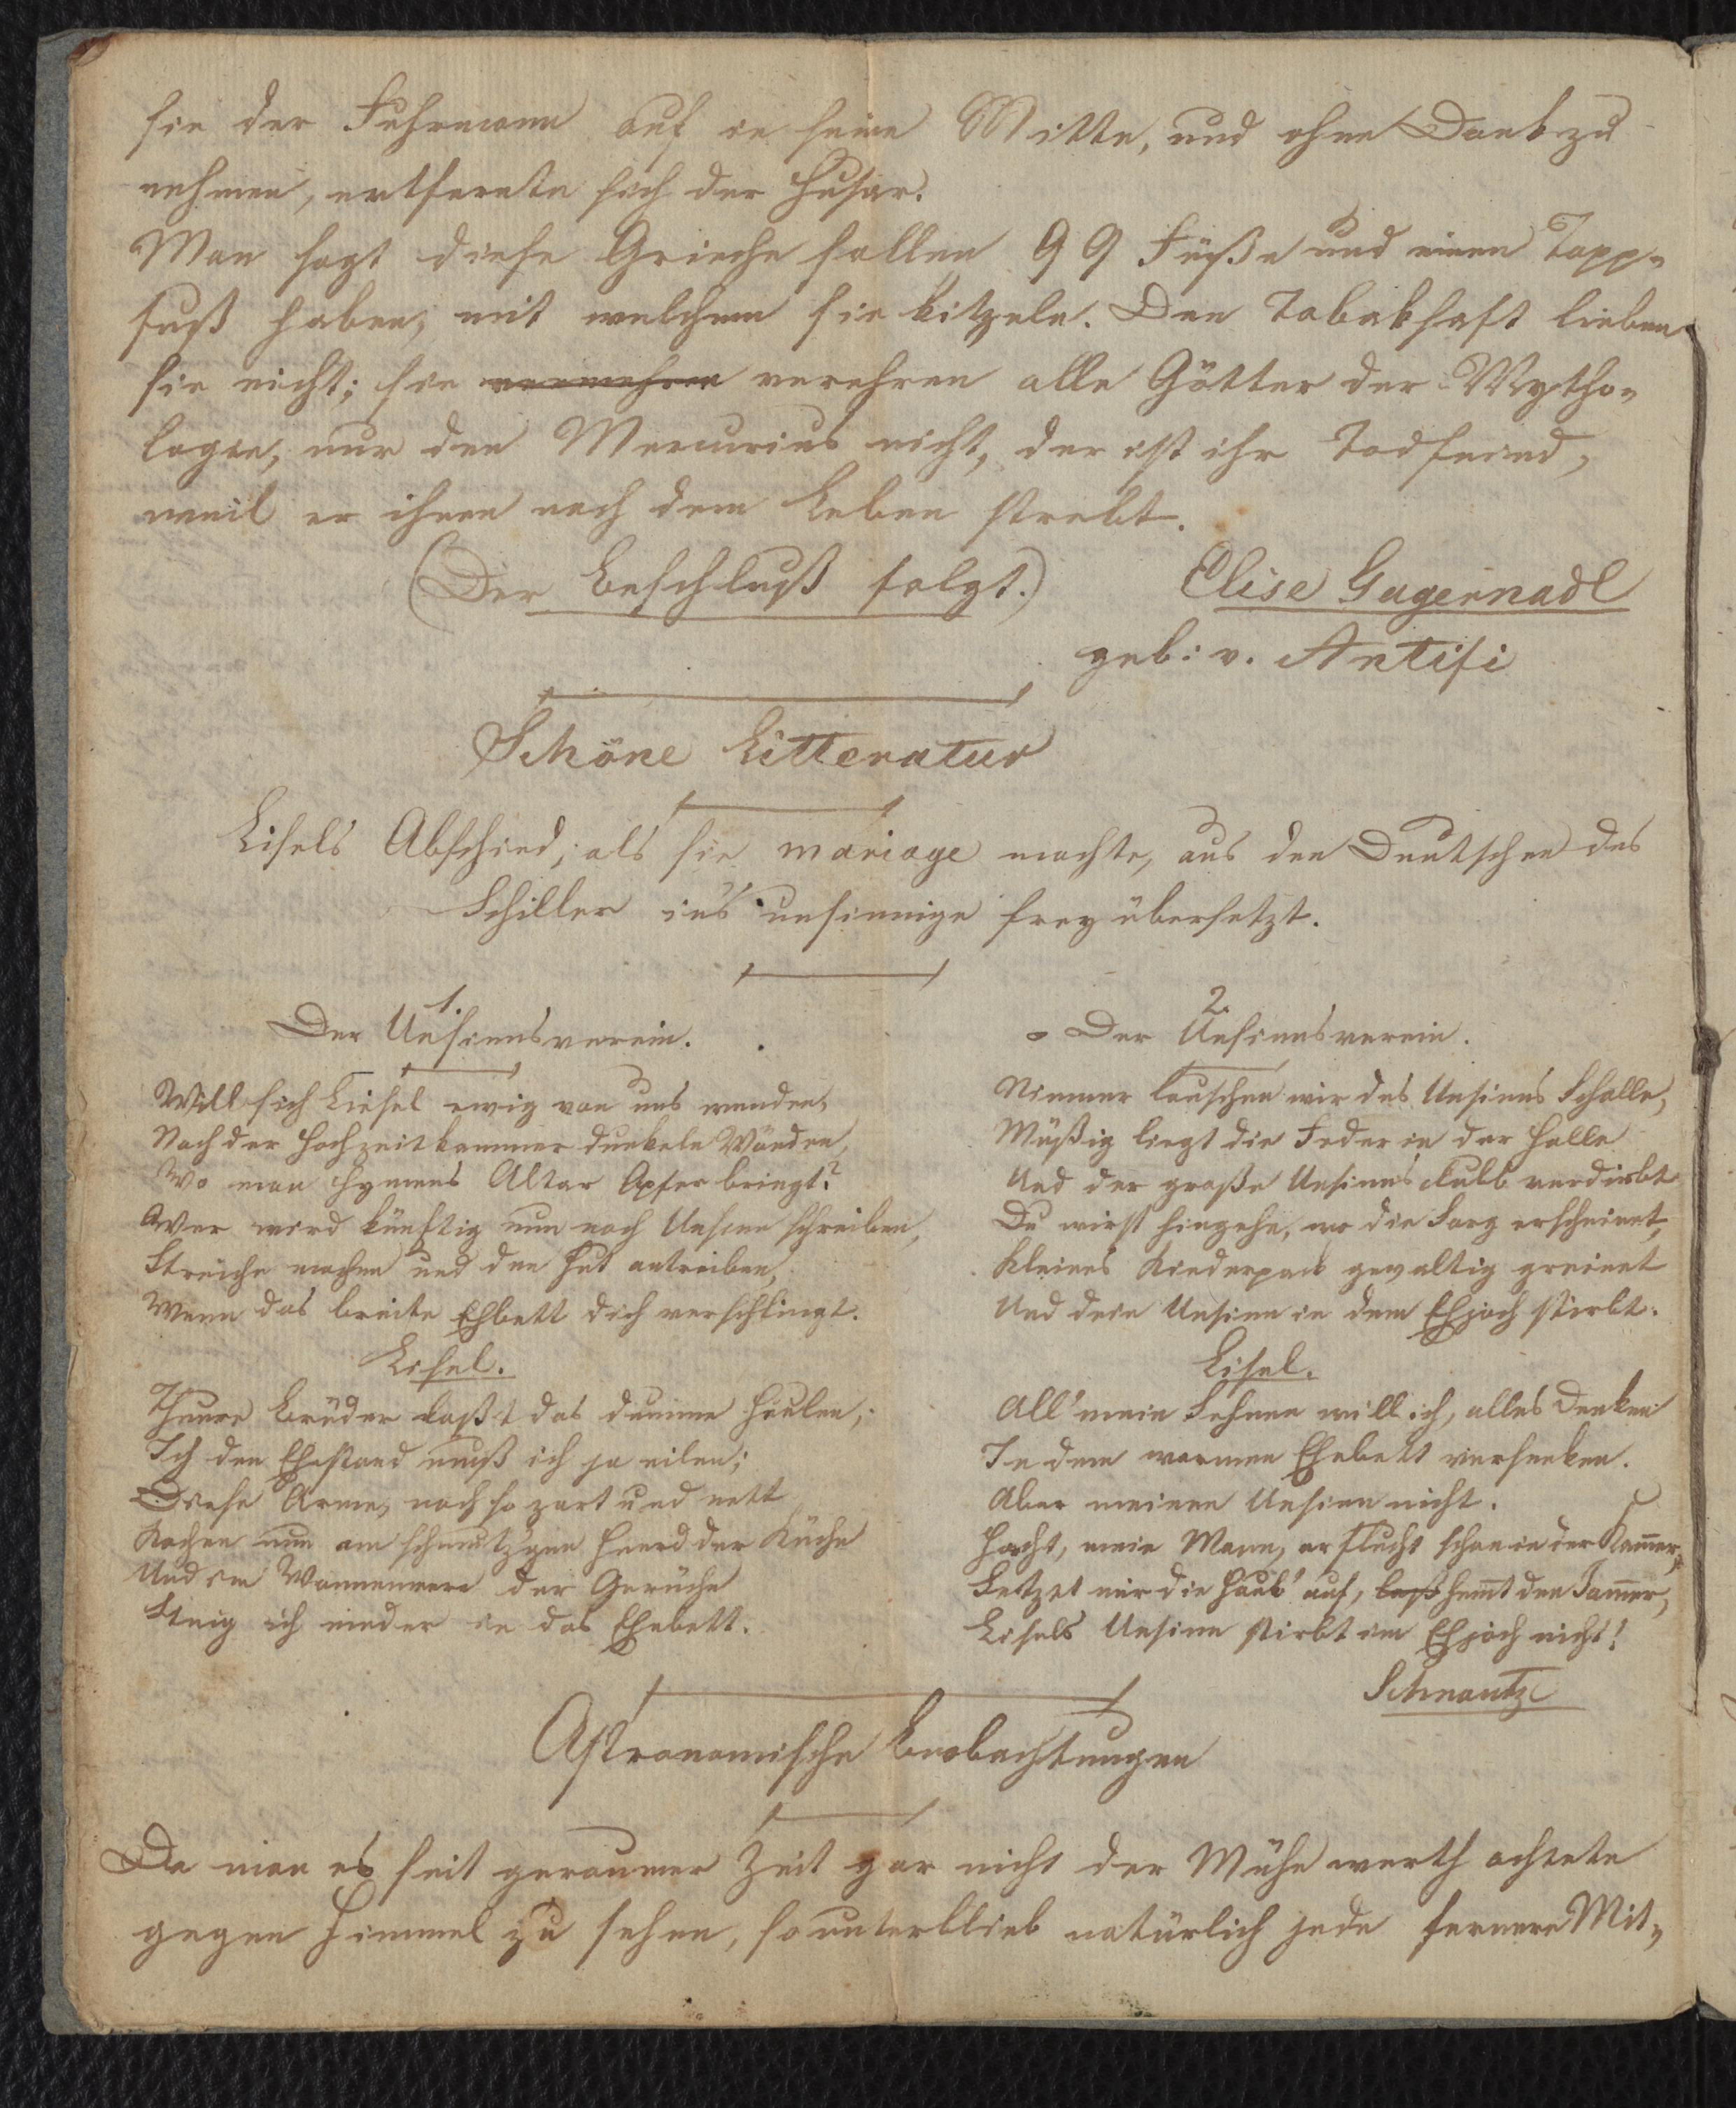 sie der Fuhrmann auf in seine Mitte, und ohne Dank zu
nehmen, entfernte sich der Husar.
Man sagt diese Grieche sollen 99 Füße und einen Tapp-
fuß haben, mit welchem sie kitzeln. Den Tabaksaft lieben
sie nicht; sie vermehren verehren alle Götter der Mytho-
logie, nur den Mercurius nicht, der ist ihr Todfeind,
weil er ihnen nach dem Leben strebt.
(Der Beschluß folgt.) Elise Gagernadl
geb: v. Antifi
Schöne Litteratur
Lisels Abschied, als sie mariage machte, aus den Deutschen des
Schiller ins unsinnige frey übersetzt.
1.
Der Unsinnsverein.
Will sich Liesel ewig von uns wenden,
Nach der Hochzeitkammer dunkeln Wänden,
Wo man Hymens Altar Opfer bringt?
Wer wird künftig nun noch Unsinn schreiben,
Streiche machen und den Hut antreiben,
Wenn das breite Ehbett dich verschlingt.
Lisel.
Theure Brüder laßt das dumme Heulen,
In den Ehestand muß ich ja eilen;
Diese Arme, noch so zart und nett
Kochen nun am schmutzgen Heerd der Küche
Und im Wonnemeere der Gerüche
Steig ich nieder in das Ehebett.
2.
Der Unsinnsverein.
Nimmer lauschen wir des Unsinns Schalle,
Müßig liegt die Feder in der Halle
Und der große Unsinns clubb verdirbt
Du wirst hingehn, wo die Sorg erscheinet,
Kleines Kinderpack gewaltig greinet
Und dein Unsinn in dem Ehjoch stirbt.
Lisel.
All' mein Sehnen will ich, alles Denken
In dem warmen Ehebett versenken.
Aber meinen Unsinn nicht.
Horcht, mein Mann, er flucht schon in der Kammer,
Setzet mir die Haub' auf, laß hemmt den Jammer,
Lisels Unsinn stirbt im Ehjoch nicht!
Schnautz
Astronomische Beobachtungen
Da man es seit geraumer Zeit gar nicht der Mühe werth achtete
gegen Himmel zu sehen, so unterblieb natürlich jede fernere Mit-